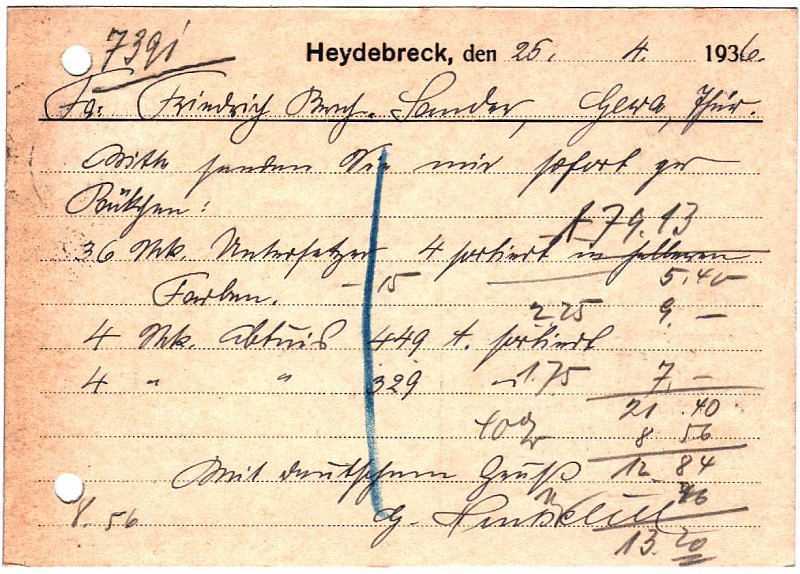 7391
Heydebreck, den 25. 4. 1936.
Fa: Friedrich Sander, Gera, Thür.
Bitte senden Sie mir sofort
79.13
36 Stk. Untersetzer 4 sortiert in helleren
- 15 5.40
Farben.
2 25 9. -
4 Stk. Etuis 449 t. sortiert
4 " " 329 - 1.75 7. -
21 .40
40% 8 56
Mit deutschem Gruß 12 84
G.
8.56
13.20